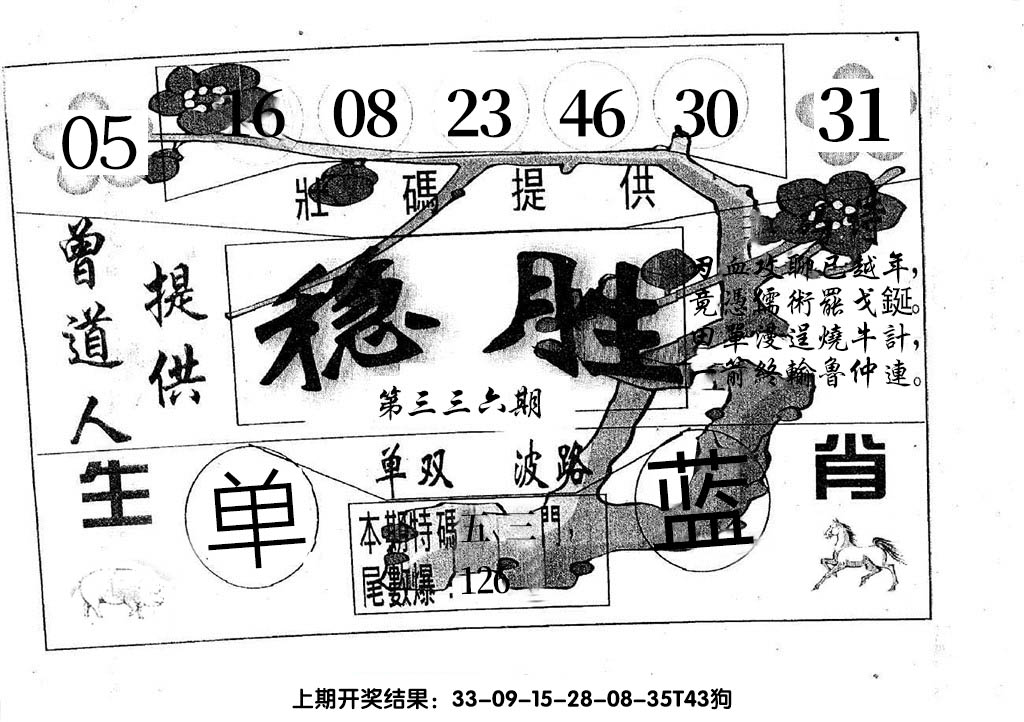 05 16 08 23 46 30 31
壯碼提供
特
曾道人
提供
稳胜
第三三六期
血攻聊已越年，
竟憑儒術罷戈鋋。
田單漫逞燒牛計，
一箭終輸魯仲連。
单双 波路
生 单 蓝 肖
本期特碼五、三門，
尾數爆：126
上期开奖结果：33-09-15-28-08-35T43狗